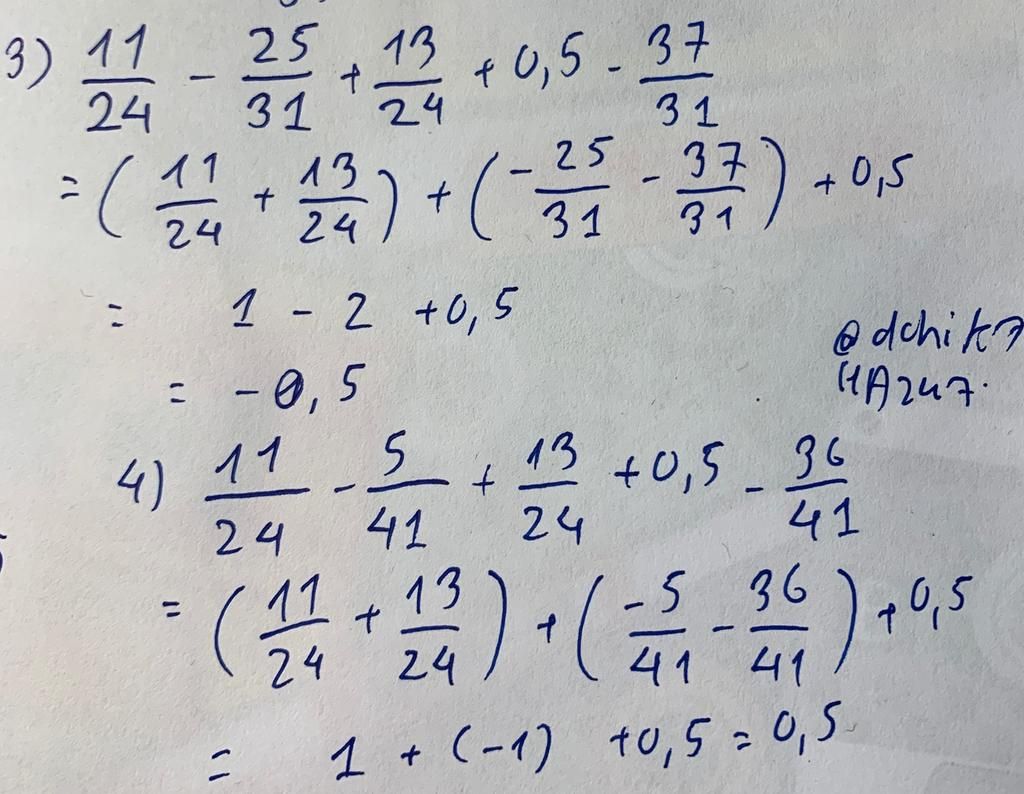 3) 11/24 - 25/31 + 13/24 + 0,5 - 37/31
= (11/24 + 13/24) + (-25/31 - 37/31) + 0,5
= 1 - 2 + 0,5
= -0,5
4) 11/24 - 5/41 + 13/24 + 0,5 - 36/41
= (11/24 + 13/24) + (-5/41 - 36/41) + 0,5
= 1 + (-1) + 0,5 = 0,5